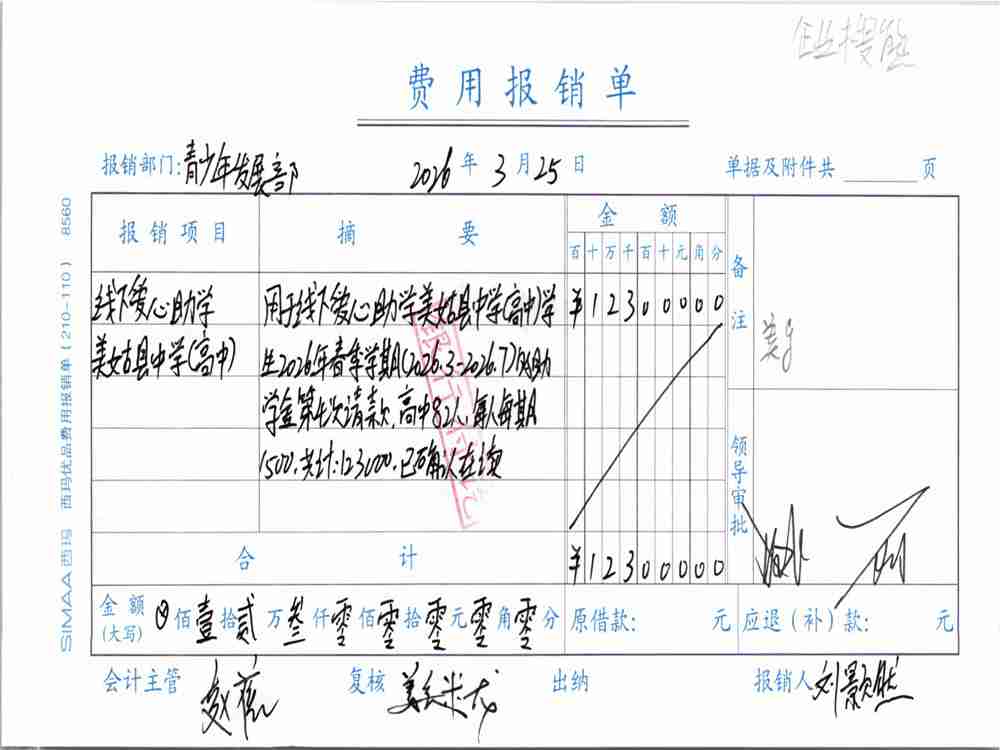 费用报销单
报销部门:青少年发展部 2026年3月25日 单据及附件共 页
报销项目 摘要 金额 备注
百十万千百十元角分
线下爱心助学 用于线下爱心助学美姑县中学(高中)学 ¥12300000
美姑县中学(高中) 生2026年春季学期(2026.3-2026.7)的助
学金第七次请款,高中82人,每人每期
1500.共计:123000.已确认在读
银行付讫
领导审批
合计 ¥12300000
金额(大写) ⊗佰壹拾贰万叁仟零佰零拾零元零角零分 原借款: 元 应退(补)款: 元
会计主管 复核 出纳 报销人 刘颢然
SIMAA西玛 西玛优品费用报销单(210-110) 8560